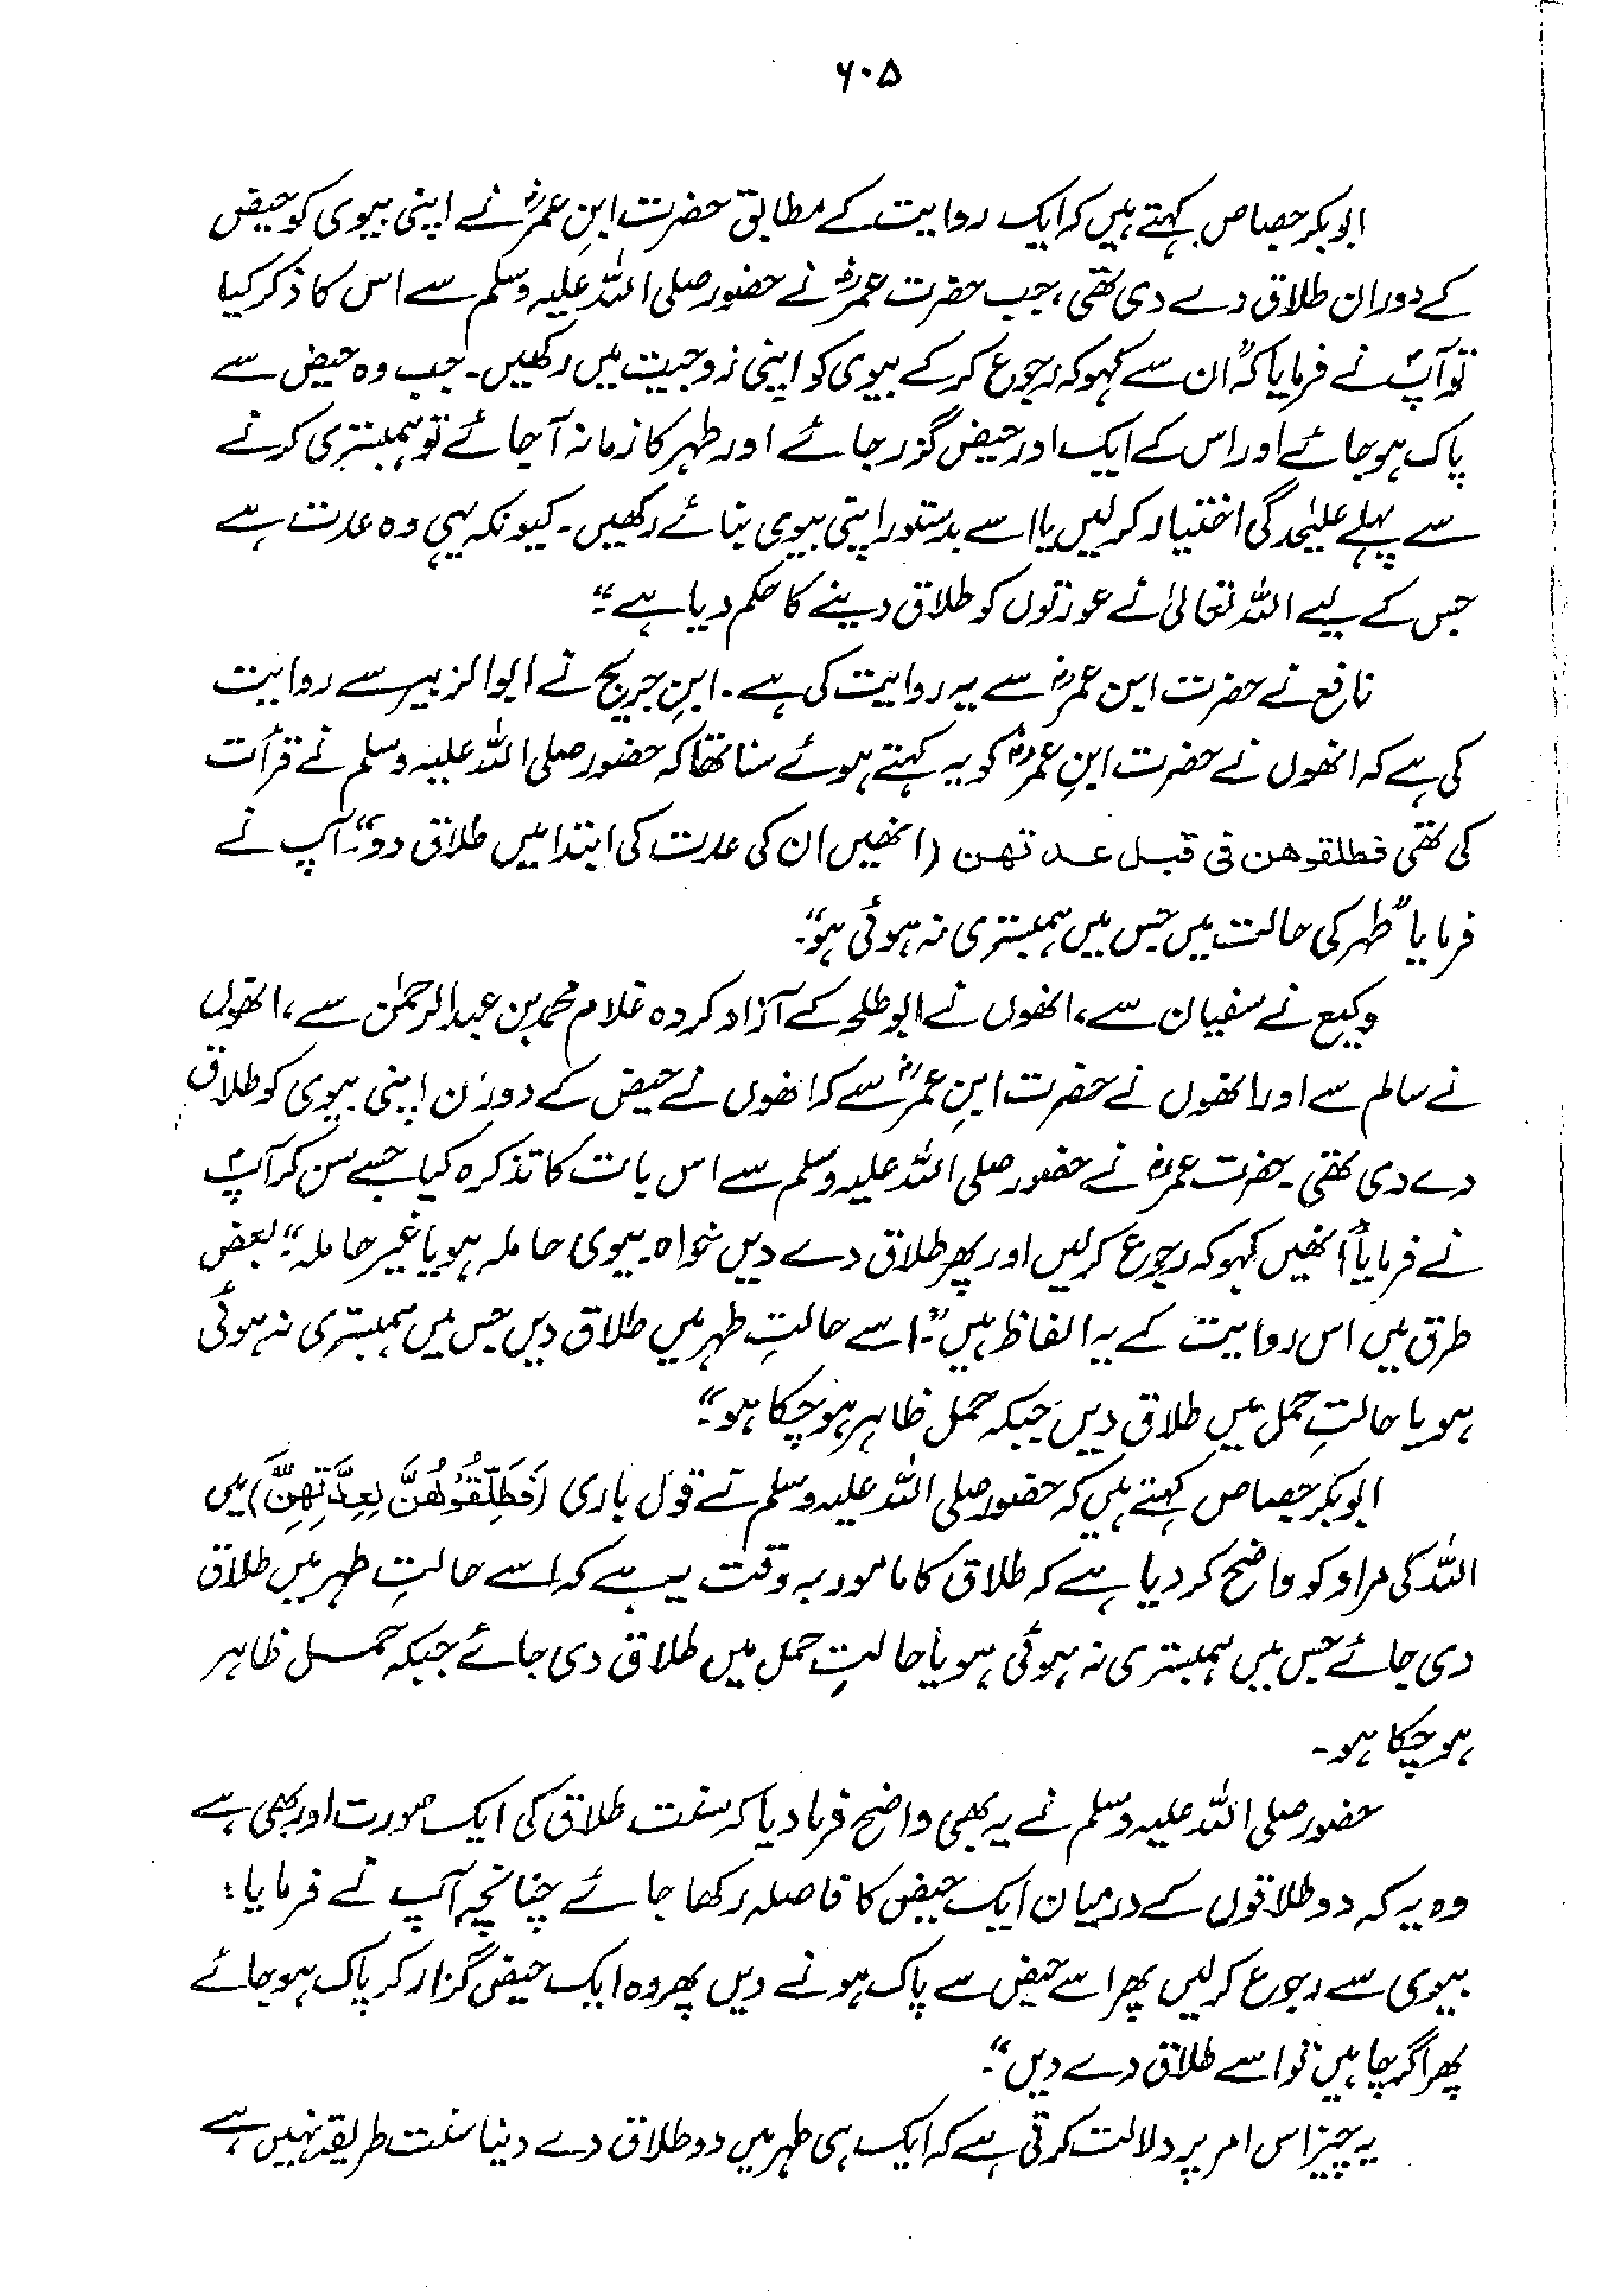 ۶۰۵
ابوبکر جصاص کہتے ہیں کہ ایک روایت کے مطابق حضرت ابنِ عمرؓ نے اپنی بیوی کو حیض
کے دوران طلاق دے دی تھی، جب حضرت عمرؓ نے حضور صلی اللہ علیہ وسلم سے اس کا ذکر کیا
تو آپؐ نے فرمایا کہ "ان سے کہو کہ رجوع کر کے بیوی کو اپنی زوجیت میں رکھیں۔ جب وہ حیض سے
پاک ہو جائے اور اس کے ایک اور حیض گزر جائے اور طہر کا زمانہ آ جائے تو ہمبستری کرنے
سے پہلے علیٰحدگی اختیار کر لیں یا اسے بدستور اپنی بیوی بنائے رکھیں۔ کیونکہ یہی وہ عدت ہے
جس کے لیے اللہ تعالیٰ نے عورتوں کو طلاق دینے کا حکم دیا ہے"۔
نافع نے حضرت ابن عمرؓ سے یہ روایت کی ہے۔ ابنِ جریج نے ابوالزبیر سے روایت
کی ہے کہ انھوں نے حضرت ابنِ عمرؓ کو یہ کہتے ہوئے سنا تھا کہ حضور صلی اللہ علیہ وسلم نے قرأت
کی تھی فطلقوھن فی قبل عدتھن (انھیں ان کی عدت کی ابتدا میں طلاق دو"۔ آپ نے
فرمایا "طہر کی حالت میں جس میں ہمبستری نہ ہوئی ہو"۔
وکیع نے سفیان سے، انھوں نے ابوطلحہ کے آزاد کردہ غلام محمد بن عبدالرحمٰن سے، انھوں
نے سالم سے اور انھوں نے حضرت ابنِ عمرؓ سے کہ انھوں نے حیض کے دوران اپنی بیوی کو طلاق
دے دی تھی۔ حضرت عمرؓ نے حضور صلی اللہ علیہ وسلم سے اس بات کا تذکرہ کیا جسے سن کر آپؐ
نے فرمایا "انھیں کہو کہ رجوع کر لیں اور پھر طلاق دے دیں خواہ بیوی حاملہ ہو یا غیر حاملہ"۔ بعض
طرق میں اس روایت کے یہ الفاظ ہیں"۔ اسے حالتِ طہر میں طلاق دیں جس میں ہمبستری نہ ہوئی
ہو یا حالتِ حمل میں طلاق دیں جبکہ حمل ظاہر ہو چکا ہو"۔
ابوبکر جصاص کہتے ہیں کہ حضور صلی اللہ علیہ وسلم نے قول باری (فَطَلِّقُوْهُنَّ لِعِدَّتِهِنَّ) میں
اللہ کی مراد کو واضح کر دیا ہے کہ طلاق کا مامور بہ وقت یہ ہے کہ اسے حالتِ طہر میں طلاق
دی جائے جس میں ہمبستری نہ ہوئی ہو یا حالتِ حمل میں طلاق دی جائے جبکہ حمل ظاہر
ہو چکا ہو۔
حضور صلی اللہ علیہ وسلم نے یہ بھی واضح فرما دیا کہ سنت طلاق کی ایک صورت اور بھی ہے
وہ یہ کہ دو طلاقوں کے درمیان ایک حیض کا فاصلہ رکھا جائے چنانچہ آپ نے فرمایا:
بیوی سے رجوع کر لیں پھر اسے حیض سے پاک ہونے دیں پھر وہ ایک حیض گزار کر پاک ہو جائے
پھر اگر چاہیں تو اسے طلاق دے دیں"۔
یہ چیز اس امر پر دلالت کرتی ہے کہ ایک ہی طہر میں دو طلاق دے دینا سنت طریقہ نہیں ہے